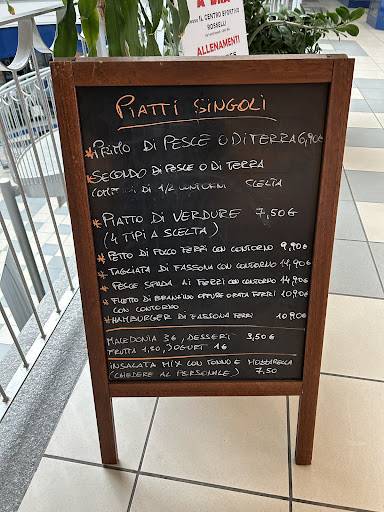 IL CENTRO SPORTIVO
ROSSELLI
ALLENAMENTI
PIATTI SINGOLI
*PRIMO DI PESCE O DI TERRA 6,90€
*SECONDO DI PESCE O DI TERRA
DI 1/2 CONTORNI SCELTA
*PIATTO DI VERDURE 7,50€
(4 TIPI A SCELTA)
*PETTO DI POLLO FERRI CON CONTORNO 9,90€
*TAGLIATA DI FASSONA CON CONTORNO 14,90€
*PESCE SPADA AI FERRI CON CONTORNO 14,90€
*FILETTO DI BRANZINO OPPURE ORATA FERRI 10,90€
CON CONTORNO
*HAMBURGER DI FASSONA FERRI 10,90€
MACEDONIA 3€, DESSERT 3,50€
FRUTTA 1,50, YOGURT 1€
INSALATA MIX CON TONNO E MOZZARELLA
(CHIEDERE AL PERSONALE) 7,50